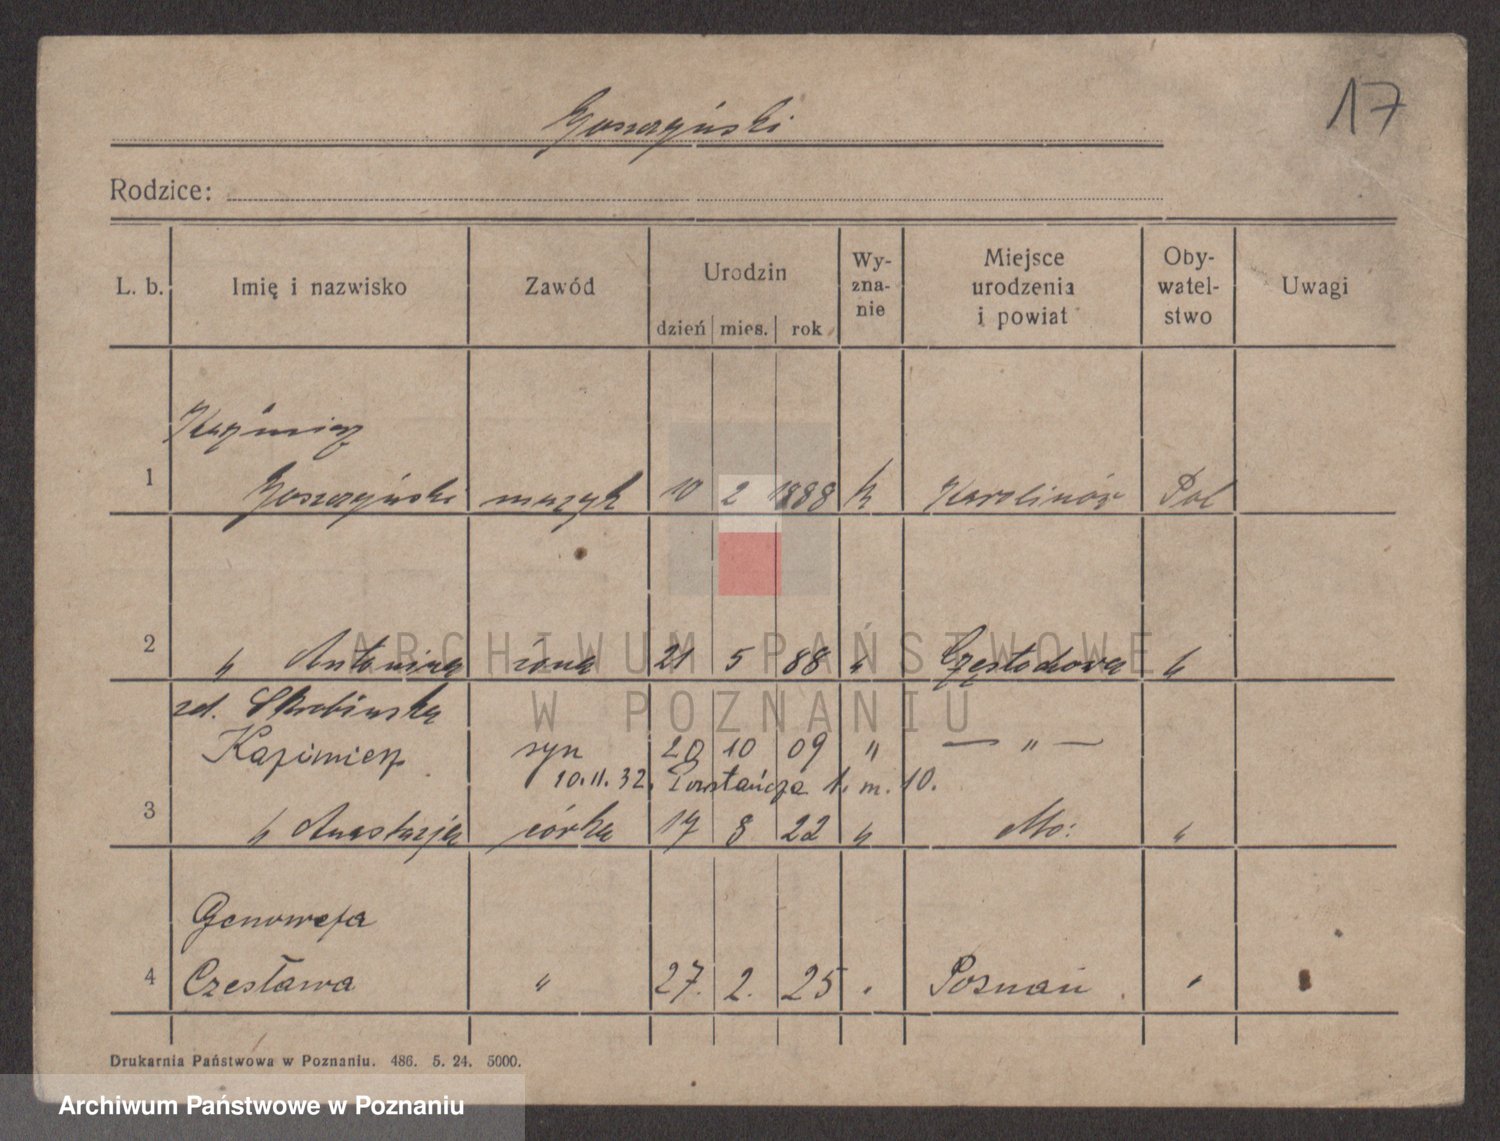 17
Goszczyński
Rodzice:
L. b. Imię i nazwisko Zawód Urodzin dzień mies. rok Wy-zna-nie Miejsce urodzenia i powiat Oby-watel-stwo Uwagi
Kaźmierz
1 Goszczyński muzyk 10 2 1888 k Karolinów Pol
2 " Antonina żona 21 5 88 " Częstochowa "
zd. Skrobińska
Kazimierz syn 20 10 09 " — " —
10.11.32. Powstańcza 1. m. 10.
3 " Anastazja córka 17 8 22 " "
Genowefa
4 Czesława " 27. 2. 25 " Poznań "
Drukarnia Państwowa w Poznaniu. 486. 5. 24. 5000.
ARCHIWUM PAŃSTWOWE
W POZNANIU
Archiwum Państwowe w Poznaniu